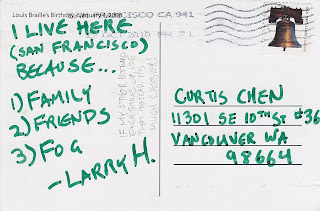 Louis Braille's Birthday, January 4, 2006
CISCO CA 941
I LIVE HERE
(SAN FRANCISCO)
BECAUSE...
1) FAMILY
2) FRIENDS
3) FOG
- LARRY H.
IF MY OTHER POSTCARD
MAKES
THAT
CURTIS CHEN
11301 SE 10TH ST #36
VANCOUVER WA
98664